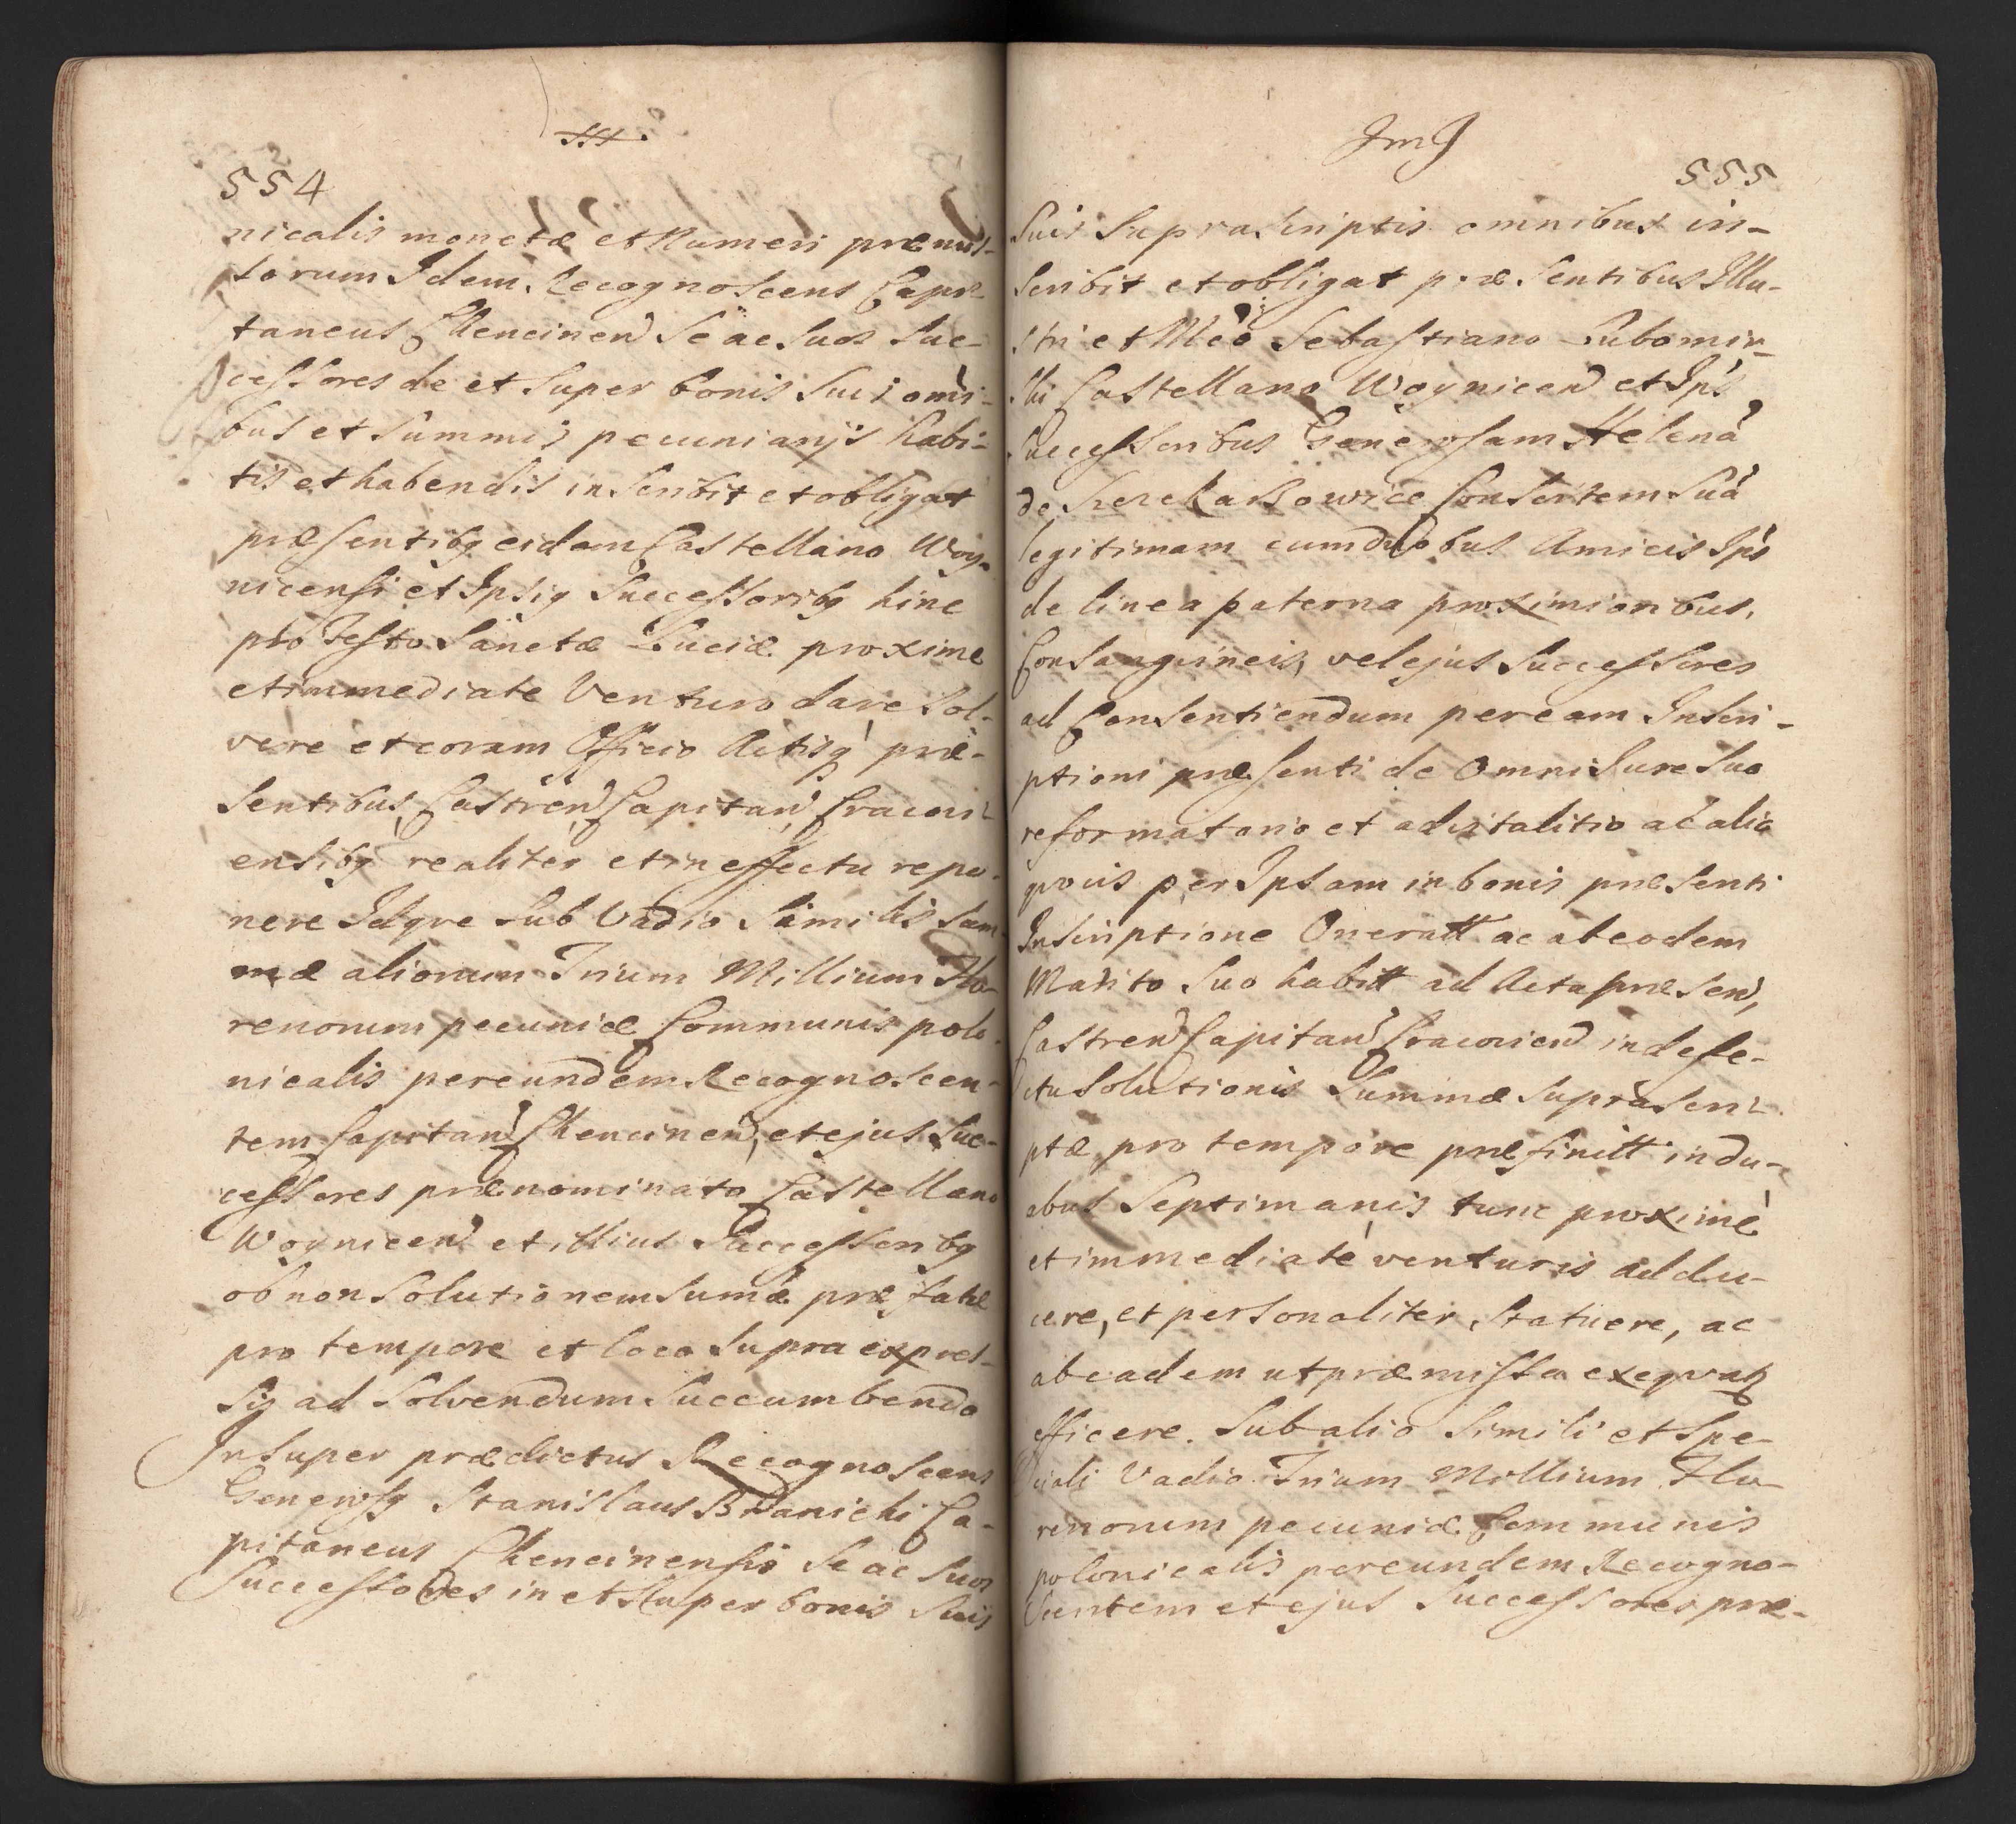 HH.
554
nicalis monetæ et Numeri præmis-
sorum Idem Recognoscens Capi-
taneus Chencinen Se ac Suos Suc-
cessores de et Super bonis Suis omni-
bus et Summis pecuniarijs habi-
tis et habendis inscribit et obligat
præsentibq eidam Castellano Woy-
nicensi et Ipsiq Successoribq hinc
pro Festo Sanctæ Luciæ proxime
et immediate Venturo dare Sol-
vere et coram Officio Actisq præ-
sentibus, Castren Capitan, Cracovi-
ensibq realiter et in effectu repo-
nere Idqve Sub Vadio Similis Sum-
mæ aliorum Trium Millium Flo-
renorum pecuniæ Communis polo-
nicalis per eundem Recognoscen-
tem Capitan Chencinen, et ejus Suc-
cessores prænominato Castellano
Woynicen et illius Successoribq
ob non Solutionem Sumæ præfatæ
pro tempore et loco Supra expres-
sis ad Solvendum Succumbendo
Insuper prædictus Recognoscens
Generosq Stanislaus Branicki Ca-
pitaneus Chencinensis Se ac Suos
Successores in et Super bonis Suis
JmJ
555
Suis Suprascriptis omnibus in-
scribit et obligat præsentibus Illu-
stri et Mco Sebastiano Lubomir-
ski Castellano Woynicen et Ips
Successoribus Generosam Helenã
de Consortem Suã
legitimam cum duobus Amicis Ips
de linea paterna proximioribus,
Consangvineis, vel ejus Successores
ad Consentiendum per eam Inscri-
ptioni præsenti de Omni Jure Suo
reformatorio et advitalitio ac alio
qvovis per Ipsam in bonis præsenti
Inscriptione Oneratt ac ab eodem
Marito Suo habitt ad Acta præsen,
Castren Capitan Cracovien in defe-
ctu Solutionis Summæ Suprascri-
ptæ, pro tempore præfinitt in du-
abus Septimanis tunc proximè
et immediatè venturis addu-
cere, et personaliter Statuere, ac
ab eadem ut præmissa exeqvatq
efficere. Sub alio Simili et Spe-
ciali Vadio Trium Millium Flo-
renorum pecuniæ Communis
polonicalis per eundem Recogno-
scentem et ejus Successores præ-